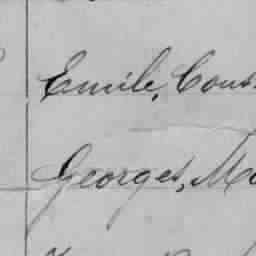 Emile, Cons
Georges, Ma